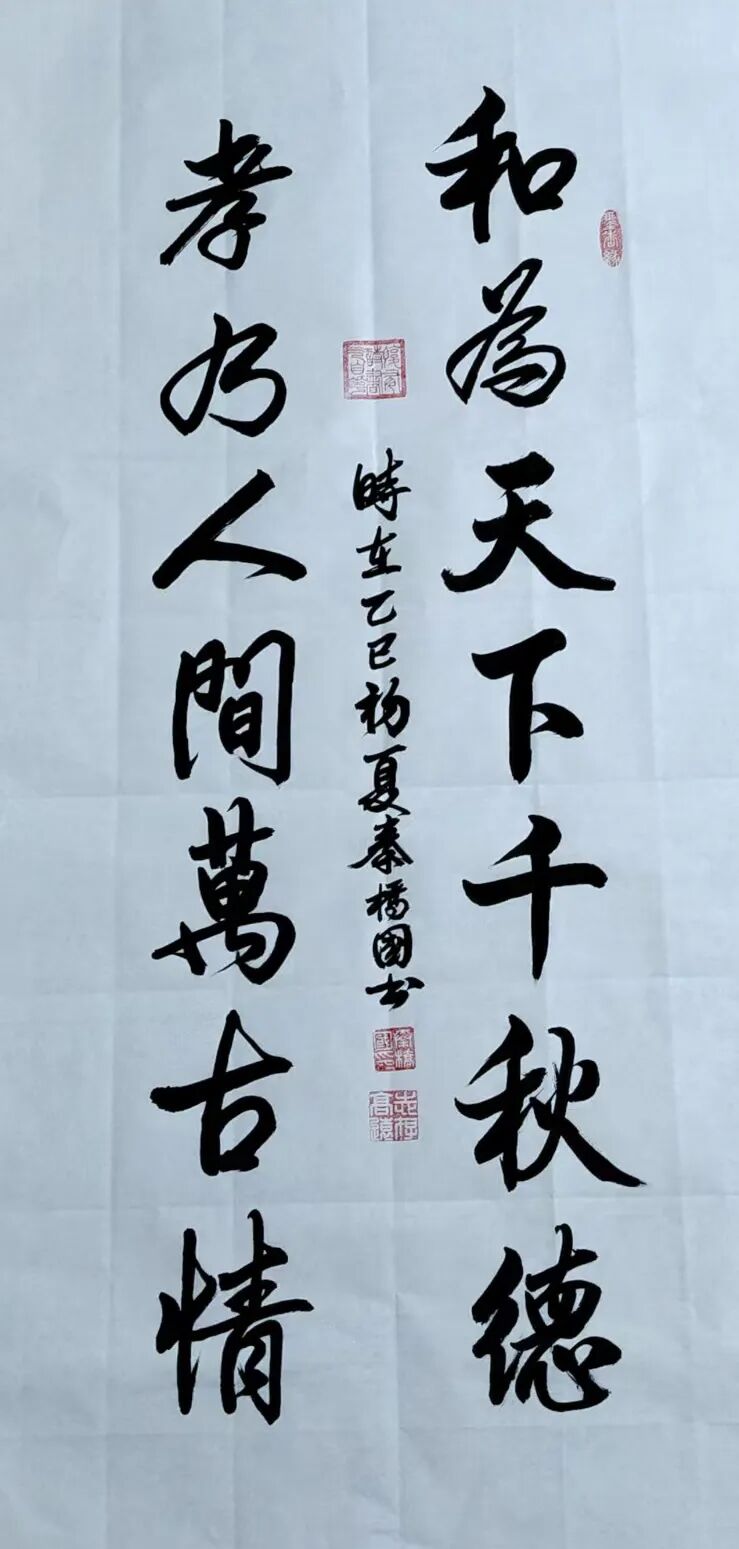 和為天下千秋德
孝乃人間萬古情
時在乙巳初夏秦橋國书